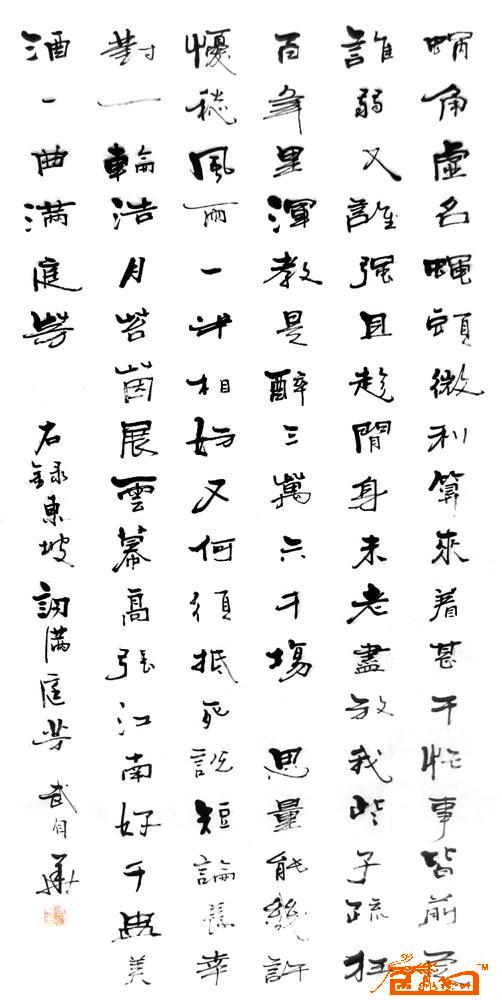 蝸角虛名蠅頭微利算來着甚干忙事皆前定
誰弱又誰强且趁閒身未老盡放我些子疏狂
百年里渾教是醉三萬六千場 思量能幾許
懮愁風雨一半相妨又何須抵死說短論長幸
對一輪浩月苔茵展雲幕高張江南好千美
酒一曲滿庭芳 右錄東坡詞滿庭芳